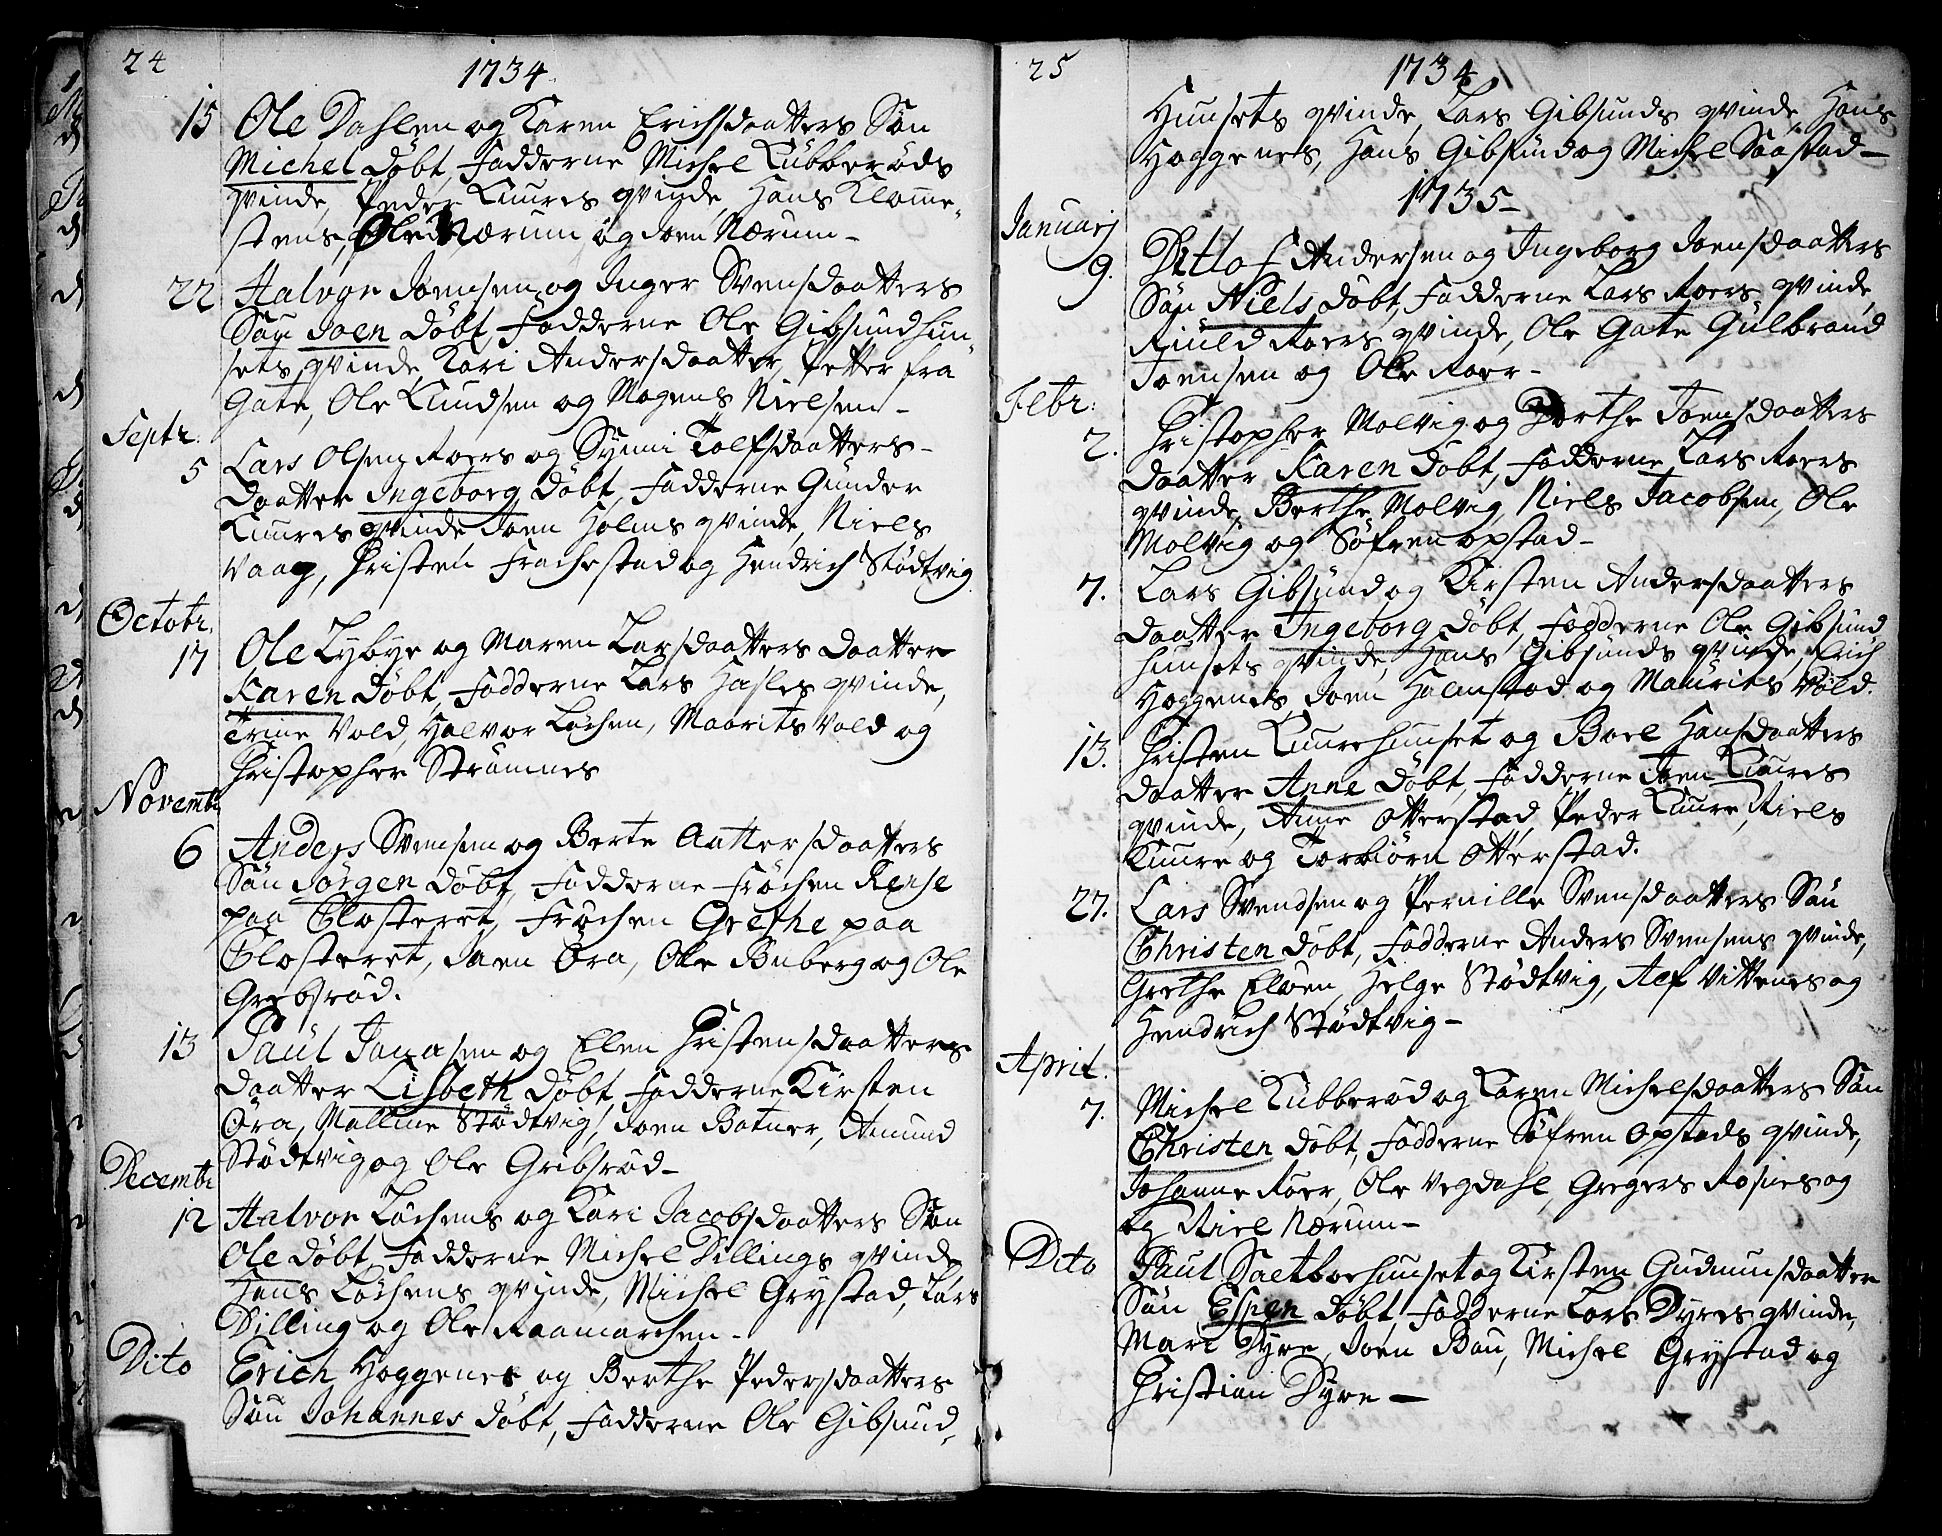 24
1734
15 Ole Dahlen og Karen Erichsdaatters Søn
Michel døbt, Fadderne Michel Kubberøds
qvinde, Peder Kuures qvinde, Hans Klomme-
stens, Ole Nærum og Joen Nærum -
22 Halvor Joensen og Inger Svensdaatters
Søn Joen døbt, Fadderne Ole Gibsundhun-
sets qvinde, Kari Andersdaatter, Petter fra
Gate, Ole Knudsen og Mogens Nielsen -
Septr.
5 Lars Olsen Roers og Synni Tolfsdaatters -
daatter Ingeborg døbt, Fadderne Gunder
Kuures qvinde Joen Holms qvinde, Niels
Vaag, Christen Frachestad og Hendrich Stødtvig
Octobr.
17 Ole Lybye og Maren Larsdaatters daatter
Karen døbt, Fadderne Lars Hasles qvinde,
Trine Vold, Halvor Løchen, Maarits Vold og
Christopher Strømnes
Novembr
6 Anders Svensen og Berte Autersdaatters
Søn Jørgen døbt, Fadderne Frøchen Reise
paa Closteret, Frøchen Grethe paa
Closteret, Joen Øra, Ole Buberg og Ole
Grebsrød.
13 Paul Jonasen og Elen Christensdaatters
daatter Lisbeth døbt, Fadderne Kirsten
Øra, Malline Stødtvig, Joen Botner, Amund
Stødtvig og Ole Gribsrød -
Decembr
12 Halvor Løchens og Kari Jacobsdaatters Søn
Ole døbt, Fadderne Michel Dillings qvinde
Hans Løchens qvinde, Michel Grystad, Lars
Dilling og Ole Raamarchen -
Dito Erich Hoggenes og Berthe Pedersdaatters
Søn Johannes døbt, Fadderne Ole Gibsund-
25
1734
Hunsets qvinde, Lars Gibsunds qvinde, Hans
Hoggenes, Hans Gibsund og Michel Saastad -
1735 -
Januarj
9. Ditlof Andersen og Ingeborg Joensdaatters
Søn Niels døbt, Fadderne Lars Roers qvinde,
Riuld Roers qvinde, Ole Gate Gulbrand
Joensen og Ole Roer -
Febr:
2. Christopher Molvig og Dorthe Joensdaatters
daatter Karen døbt, Fadderne Lars Roers
qvinde, Berthe Molvig, Niels Jacobsen, Ole
Molvig og Søfren opstad -
7. Lars Gibsund og Kirsten Andersdaatters
daatter Ingeborg døbt, Fadderne Ole Gibsund
hunsets qvinde, Hans Gibsunds qvinde, Erich
Hoggenes, Joen Halmstad og Maurits Vold.
13. Christen Kuurehunset og Boel Hansdaatters
daatter Anne døbt, Fadderne Joen Kuures
qvinde, Anne Otterstad, Peder Kuure, Niels
Kuure og Torbiørn Otterstad.
27. Lars Svendsen og Pernille Svensdaatters Søn
Christen døbt, Fadderne Anders Svensens qvinde,
Grethe Eløen, Helge Stødtvig, Alf Vittenes og
Hendrich Stødtvig -
April.
7. Michel Kubberød og Karen Michelsdaatters Søn
Christen døbt, Fadderne Søfren Opstads qvinde,
Johanne Roer, Ole Vegdahl, Gregers Rosnes og
og Niels Nærum -
Dito Paul Saltboehunset og Kirsten Gudmunsdaatter
Søn Espen døbt, Fadderne Lars Dyres qvinde,
Mari Dyre, Joen Bau, Michel Grystad og
Christian Dyre -